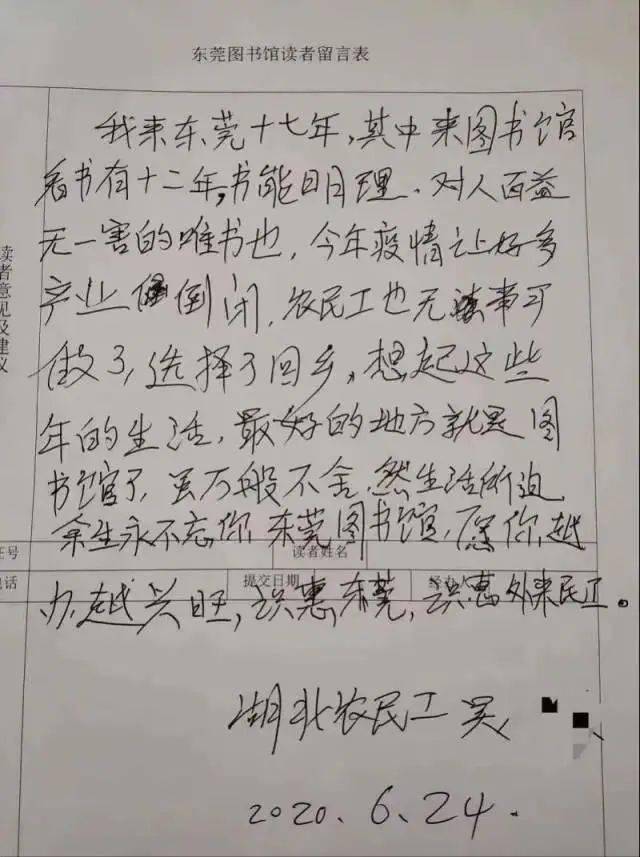 东莞图书馆读者留言表
我来东莞十七年,其中来图书馆
看书有十二年,书能明理、对人百益
无一害的唯书也,今年疫情让好多
产业倒闭,农民工也无事可
做了,选择了回乡,想起这些
年的生活,最好的地方就是图
书馆了,虽万般不舍,然生活所迫
余生永不忘你,东莞图书馆,愿你越
办越兴旺,识惠东莞,识惠外来民工。
湖北农民工 吴
2020.6.24.
读者意见及建议
证号
读者姓名
电话
提交日期
经办人